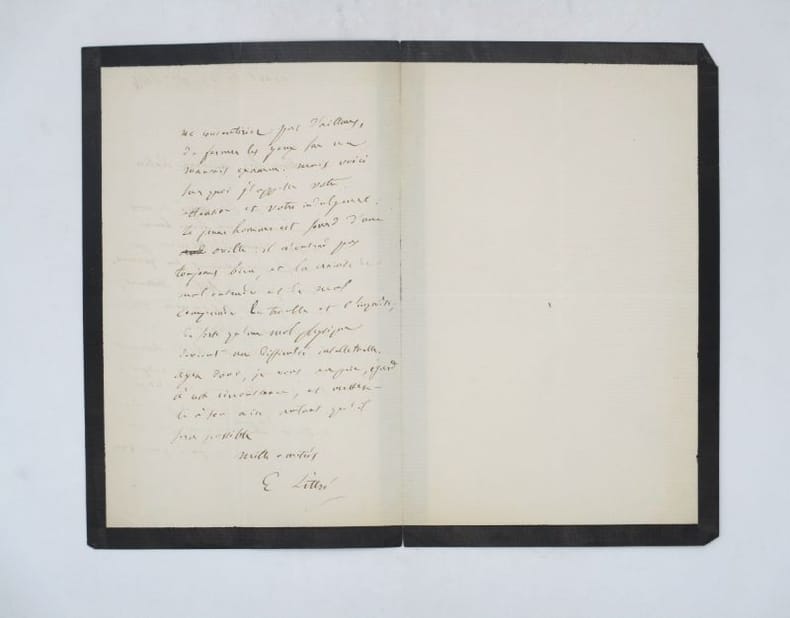 ne consentiriez pas d'ailleurs,
de fermer les yeux sur un
mauvais examen. mais voici
sur quoi j'appelle votre
attention et votre indulgence.
Le jeune homme est sourd d'une
oreille: il n'entend pas
toujours bien, et la crainte de
mal entendre et de mal
comprendre le trouble et l'inquiète,
de sorte qu'un mal physique
devient une difficulté intellectuelle.
ayez donc, je vous supplie, égard
à cette circonstance, et mettez-
le à son aise autant qu'il
sera possible
mille amitiés
E Littré